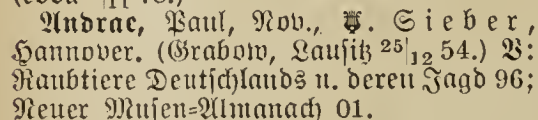 Andrae, Paul, Nov., . Sieber,
Hannover. (Grabow, Lausitz 25|12 54.) V:
Raubtiere Deutschlands u. deren Jagd 96;
Neuer Musen=Almanach 01.